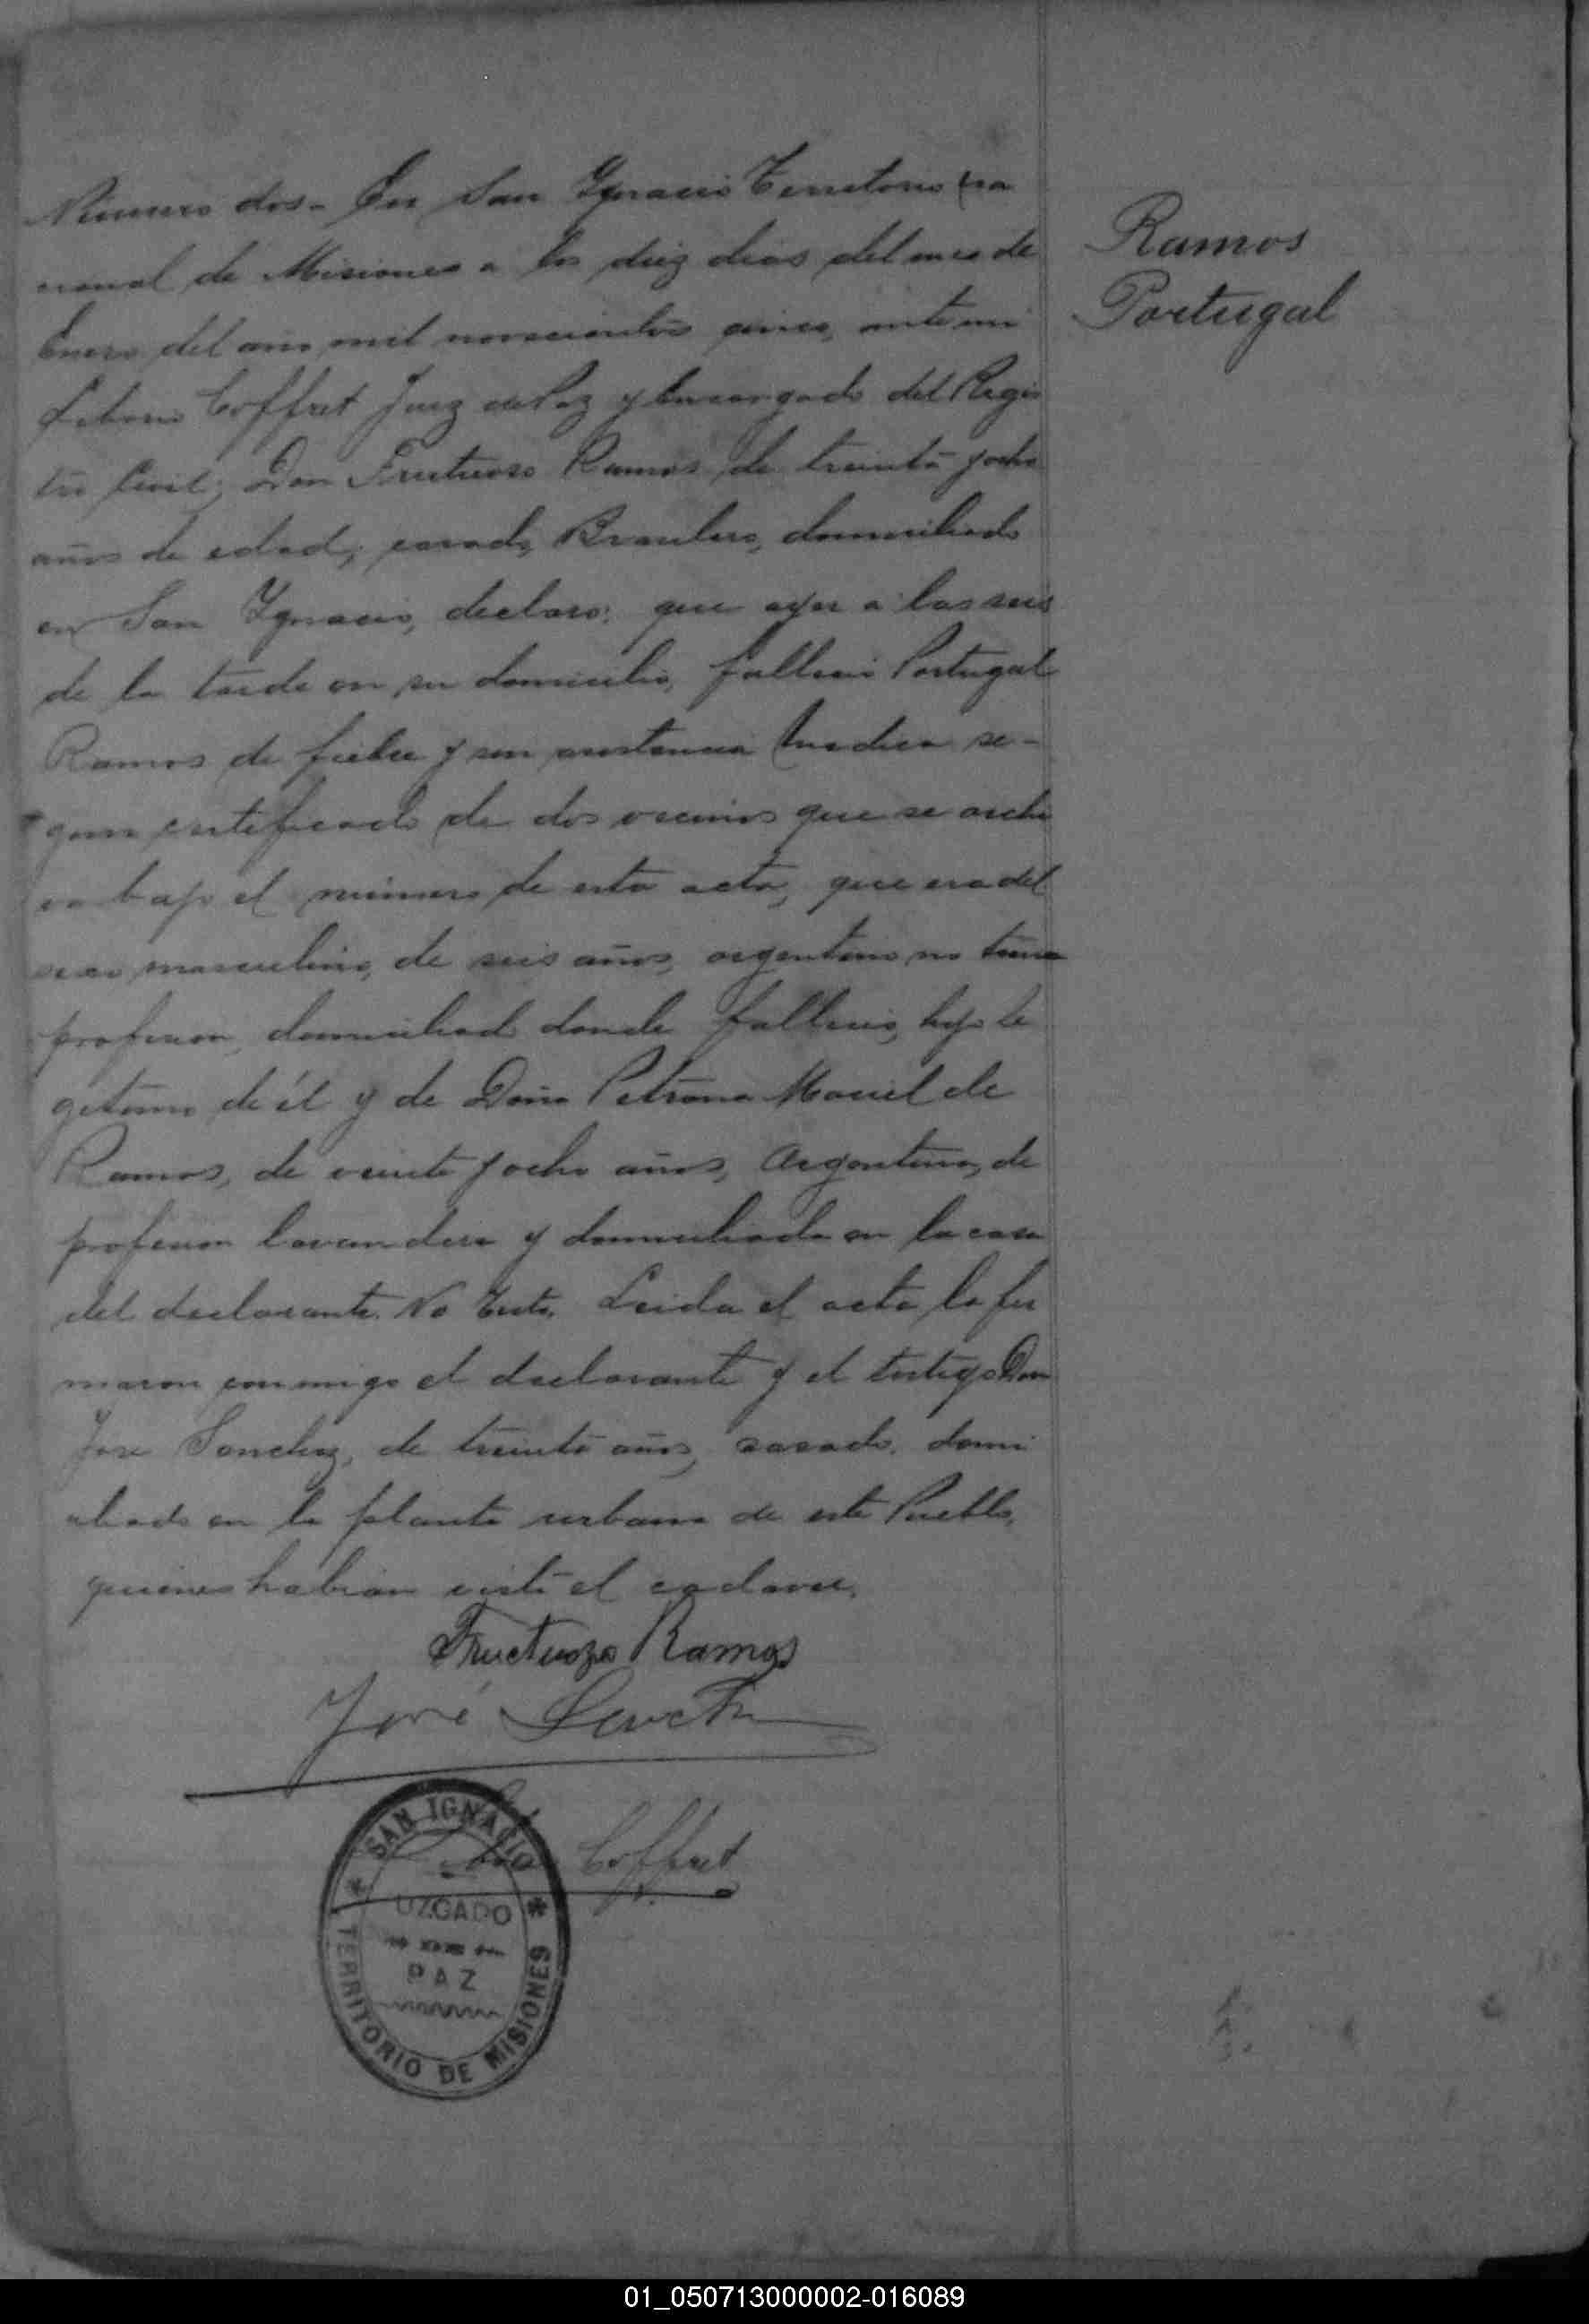 Número dos - En San Ygnacio Territorio na
cional de Misiones a los diez dias del mes de
Enero del año mil novecientos cinco, ante mi
Liborio Coffret Juez de Paz y Encargado del Regis
tro Civil; Don Fructuoso Ramos de treinta y ocho
años de edad, casado, Brasilero, domiciliado
en San Ygnacio, declaro: que ayer a las seis
de la tarde en su domicilio, falleció Portugal
Ramos de fiebre y sin asistencia medica se-
gun certificado de dos vecinos que se archi
va bajo el número de esta acta, que era del
sexo masculino, de seis años, argentino no tenia
profesion, domiciliado donde falleció, hijo le
gitimo de él y de Doña Petrona Maciel de
Ramos, de veinte y ocho años, Argentina, de
profesion lavandera y domiciliada en la casa
del declarante. No Testó. Leida el acta la fir
maron conmigo el declarante y el testigo Don
José Sanchez, de treinta años, casado, domi
ciliado en la planta urbana de este Pueblo,
quienes habian visto el cadaver.
Fructuozo Ramos
José
Coffret
SAN IGNACIO
UZGADO
DE
PAZ
TERRITORIO DE MISIONES
Ramos
Portugal
01_050713000002-016089